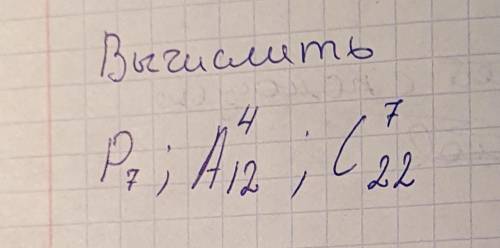 Вычислить
P₇; A₁₂⁴; C₂₂⁷